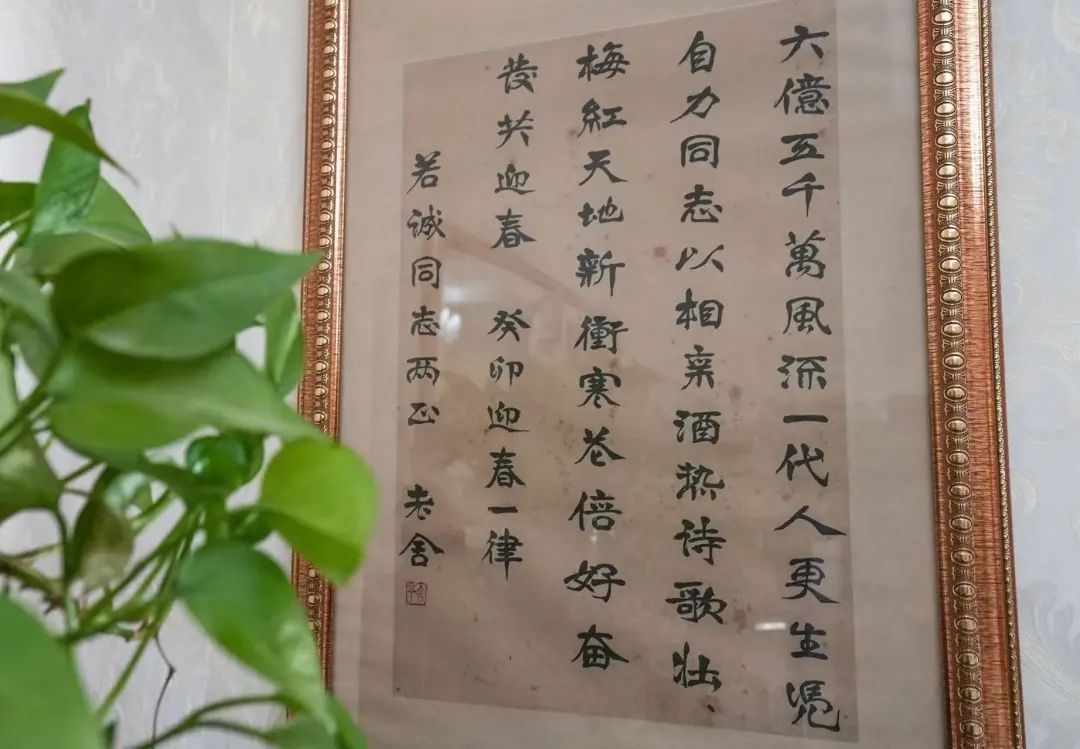 六億五千萬風流一代人更生憑
自力同志以相亲酒热诗歌壮、
梅紅天地新衝寒花倍好奋
發共迎春 癸卯迎春一律
若诚同志两正 老舍